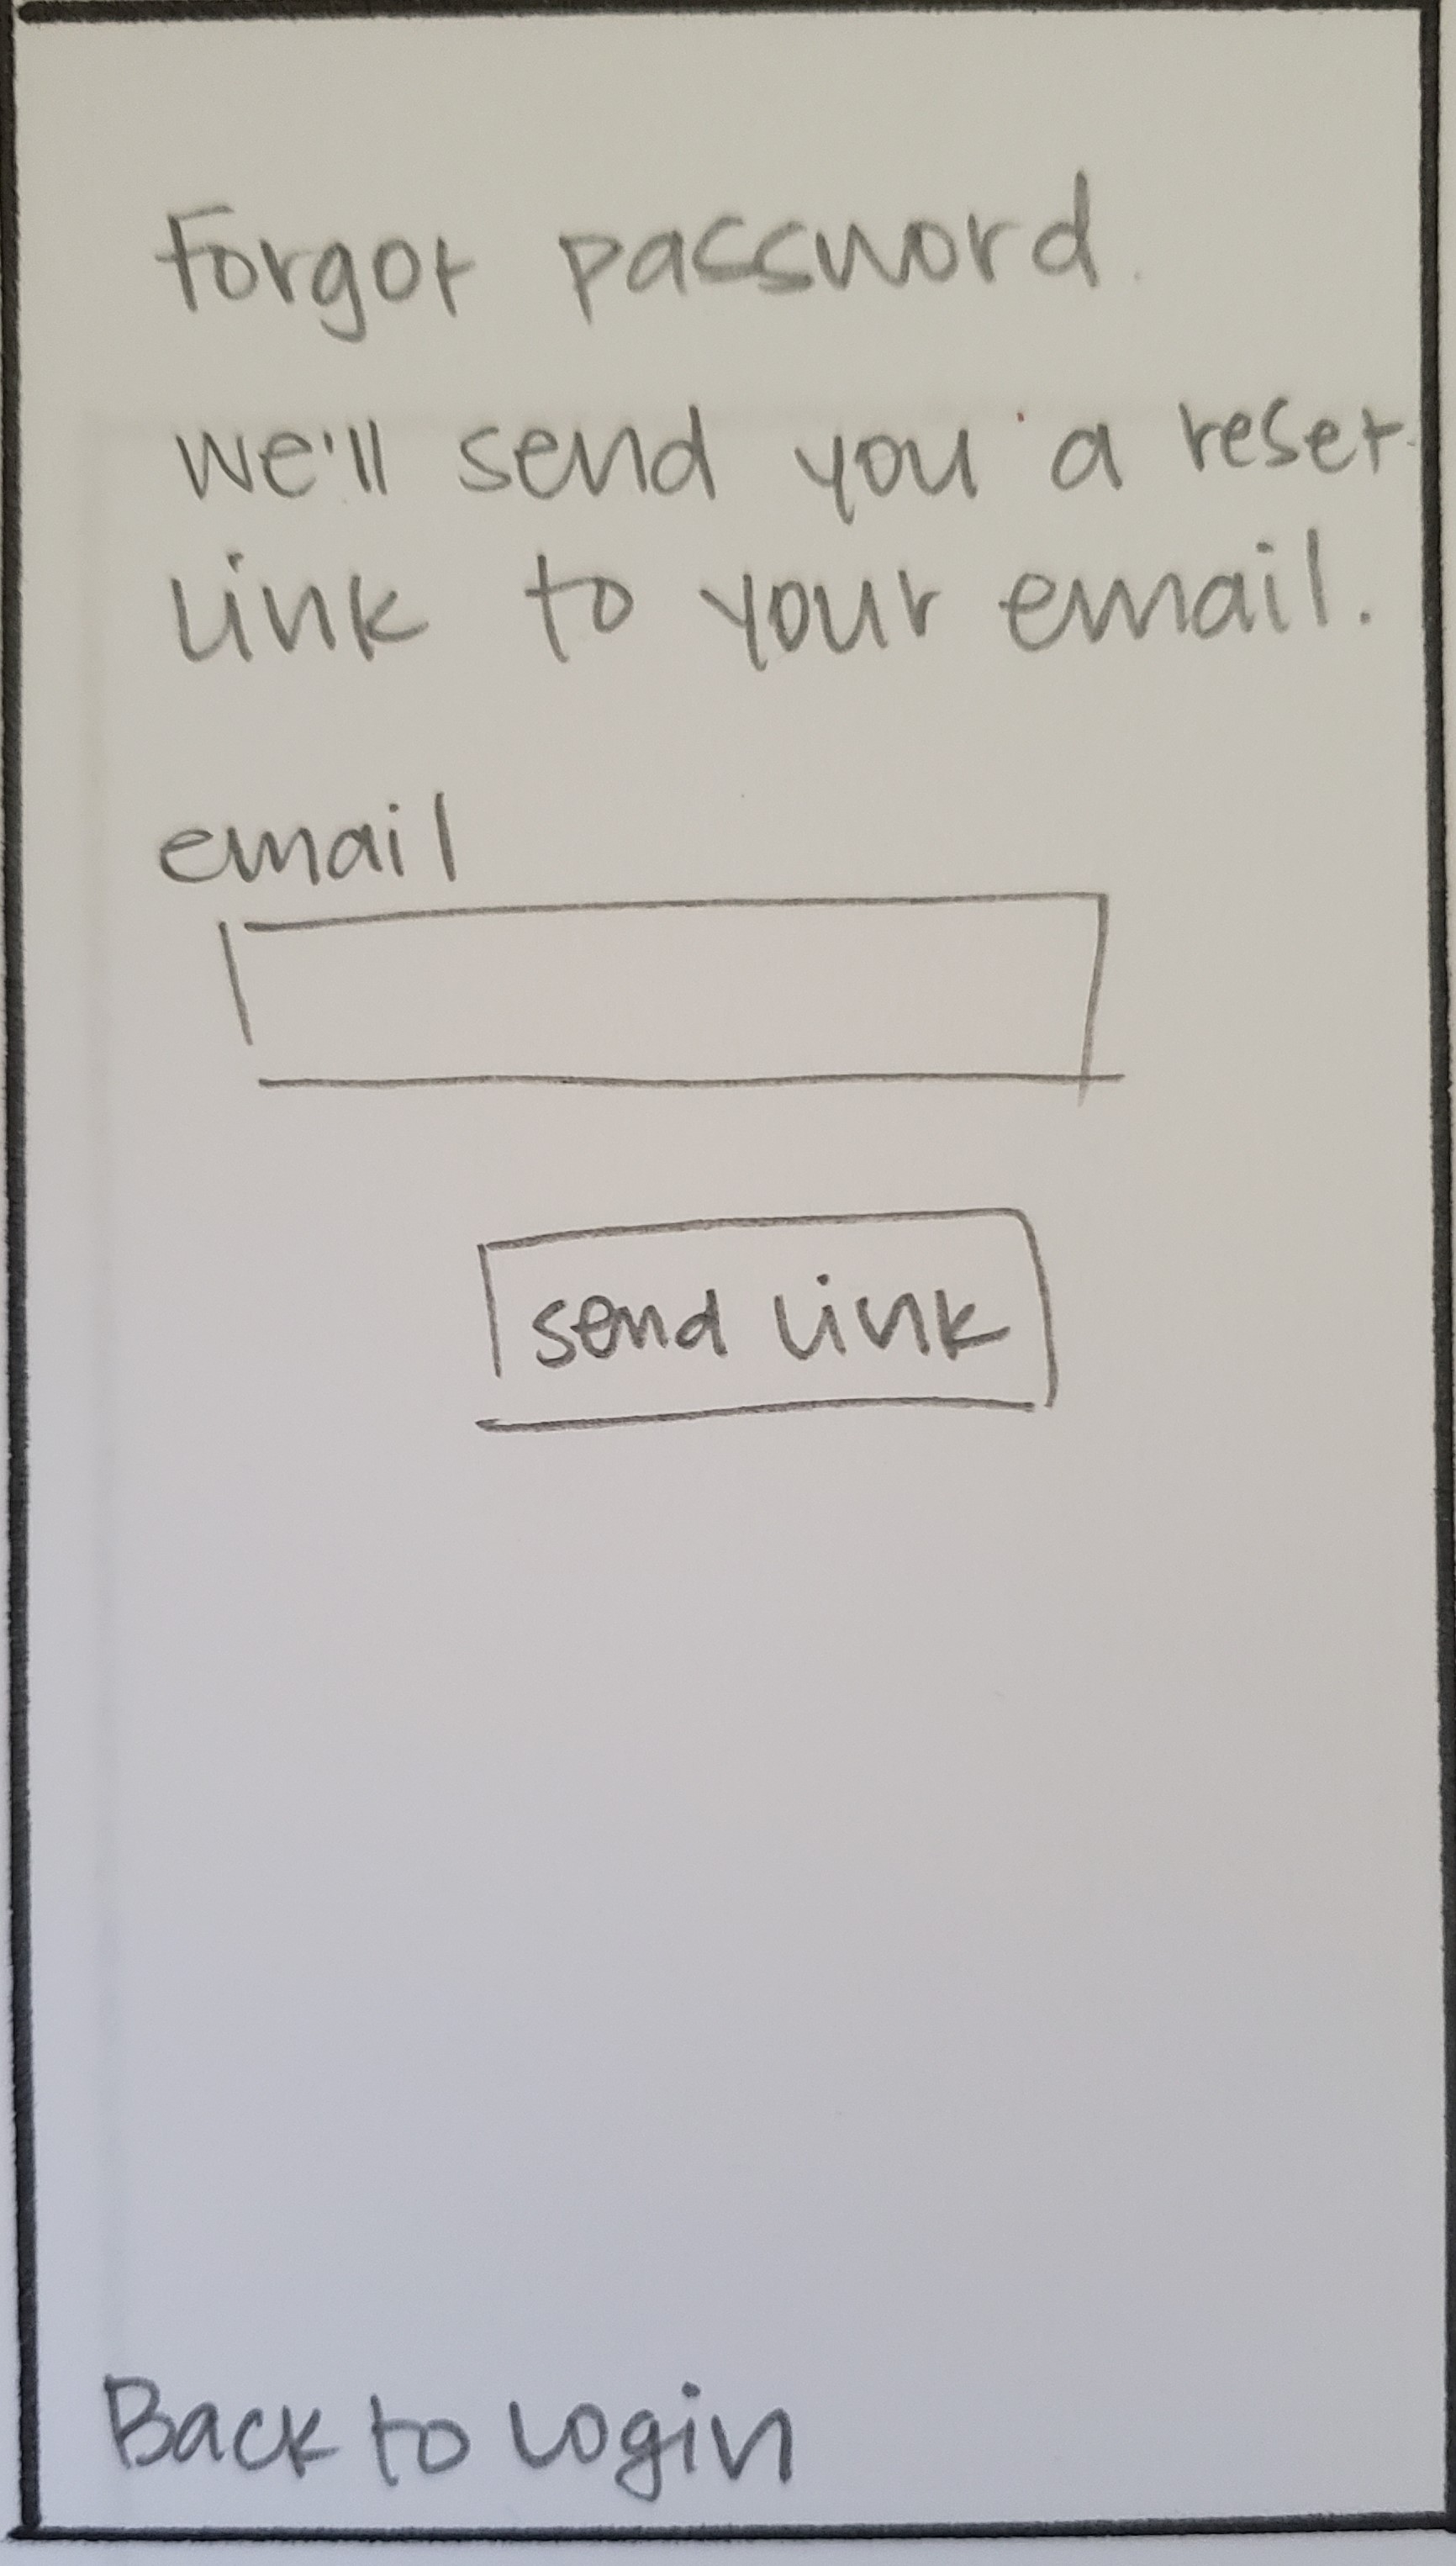 Forgot password
we'll send you a reset
link to your email.
email
send link
Back to login